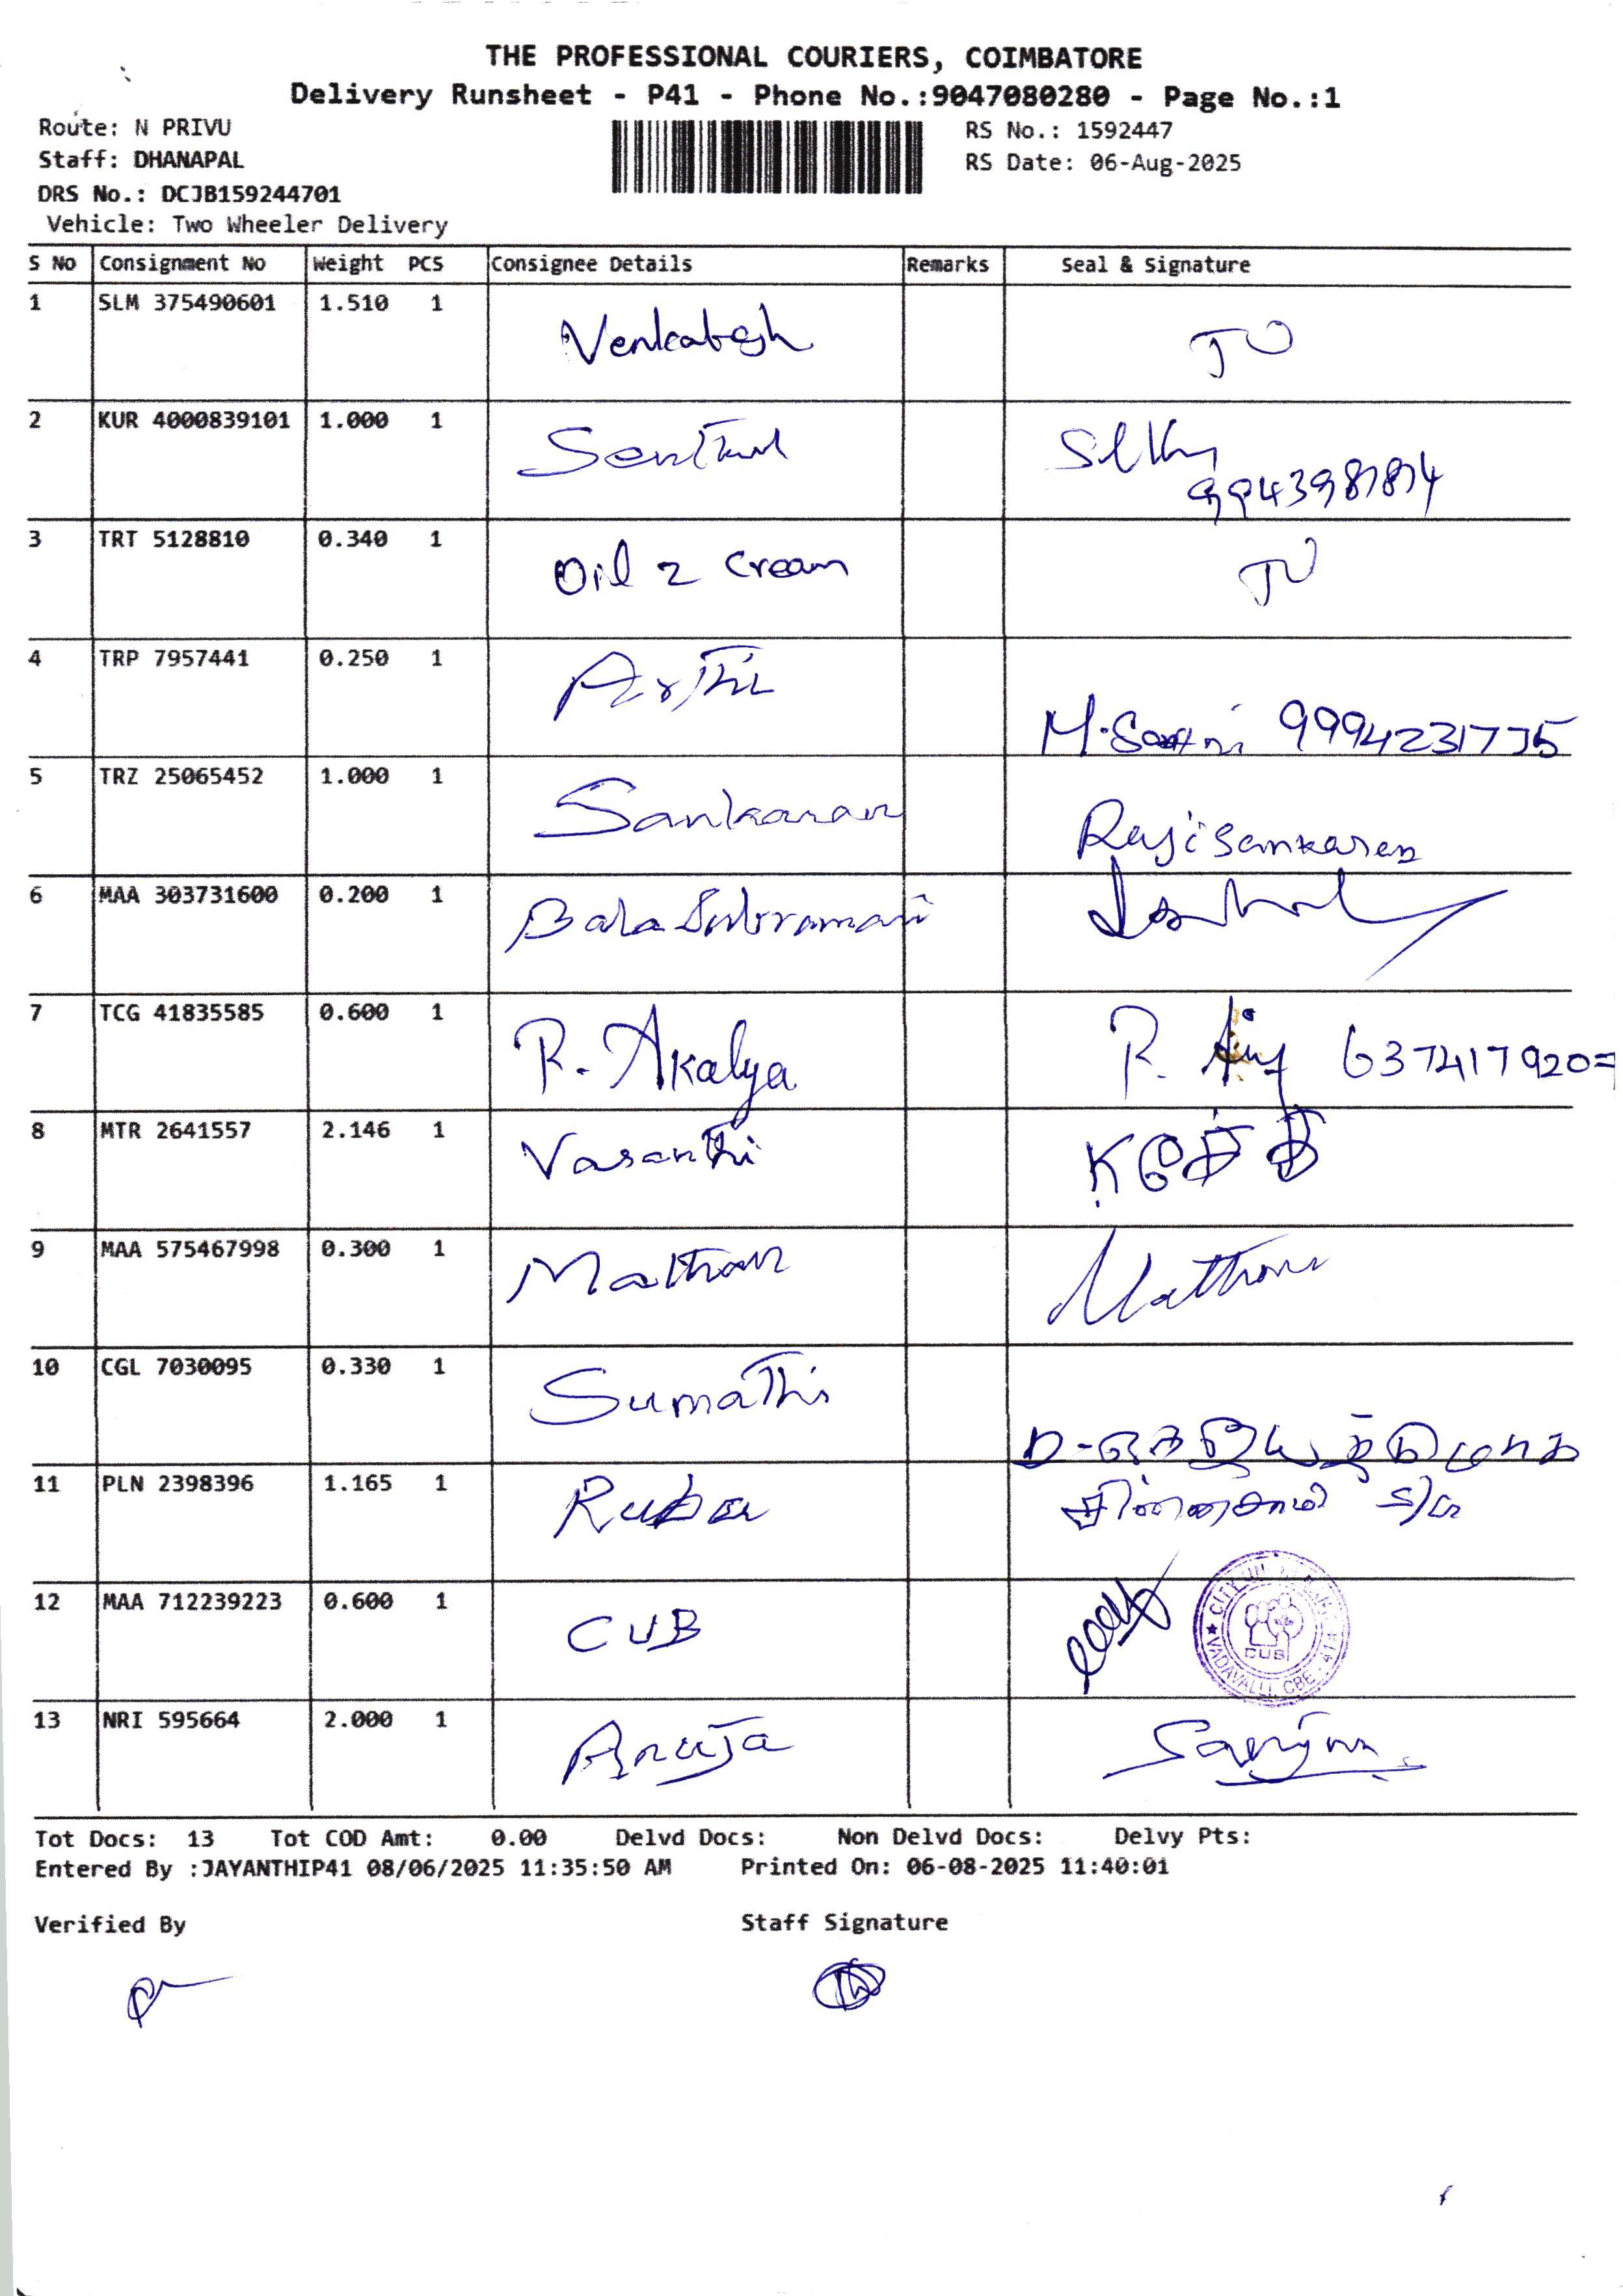 THE PROFESSIONAL COURIERS, COIMBATORE
Delivery Runsheet - P41 - Phone No.:9047080280 - Page No.:1
Route: N PRIVU
Staff: DHANAPAL
DRS No.: DCJB159244701
Vehicle: Two Wheeler Delivery
RS No.: 1592447
RS Date: 06-Aug-2025
S No Consignment No Weight PCS Consignee Details Remarks Seal & Signature
1 SLM 375490601 1.510 1 Venkatesh
2 KUR 4000839101 1.000 1 Senthil
3 TRT 5128810 0.340 1 Oil 2 Cream
4 TRP 7957441 0.250 1 Arthi 9994231775
5 TRZ 25065452 1.000 1 Sankaran Rajisankaren
6 MAA 303731600 0.200 1 Bala Subramani
7 TCG 41835585 0.600 1 R. Akalya R.
8 MTR 2641557 2.146 1 Vasanthi
9 MAA 575467998 0.300 1 Mathan Matthan
10 CGL 7030095 0.330 1 Sumathi
11 PLN 2398396 1.165 1 Ruba
12 MAA 712239223 0.600 1 CUB CUB VADAVALLI, CBE
13 NRI 595664 2.000 1 Anuja
Tot Docs: 13 Tot COD Amt: 0.00 Delvd Docs: Non Delvd Docs: Delvy Pts:
Entered By :JAYANTHIP41 08/06/2025 11:35:50 AM Printed On: 06-08-2025 11:40:01
Verified By Staff Signature